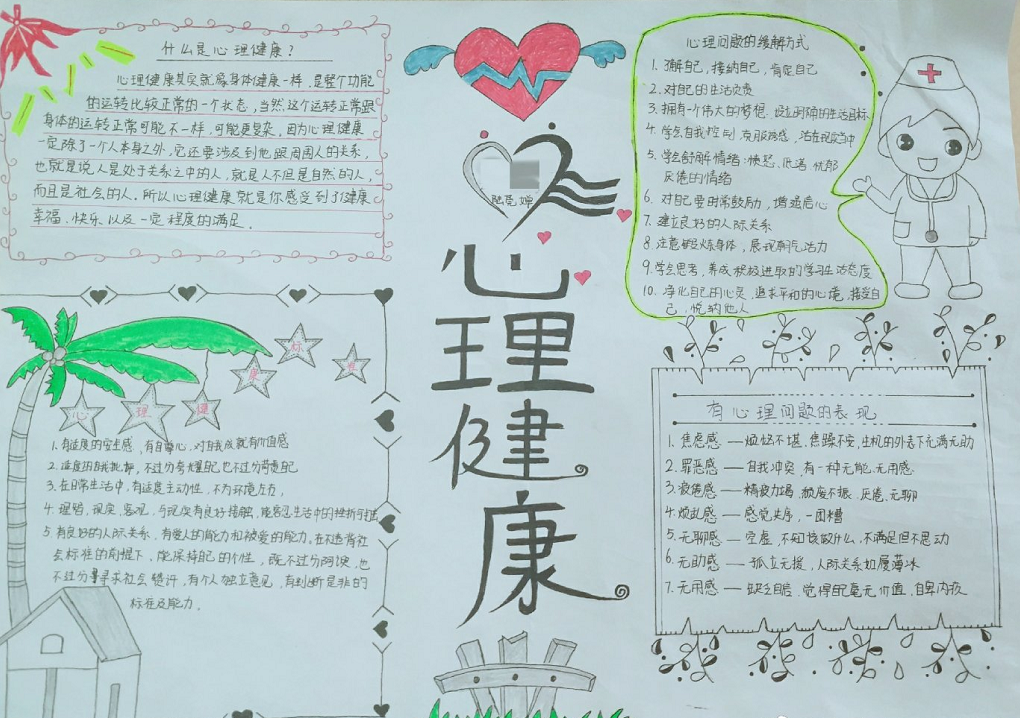 什么是心理健康？
心理健康其实就像身体健康一样，是整个功能
的运转比较正常的一个状态，当然这个运转正常跟
身体的运转正常可能不一样，可能更复杂，因为心理健康
一定除了一个人本身之外，它还要涉及到他跟周围人的关系，
也就是说人是处于关系之中的人，就是人不但是自然的人，
而且是社会的人。所以心理健康就是你感受到了健康
幸福、快乐以及一定程度的满足。
心理健康标准
1. 有适度的安全感，有自尊心，对自我成就有价值感
2. 适度的自我批评，不过分夸耀自己也不过分苛责自己
3. 在日常生活中，有适度主动性，不为环境左右，
4. 理智，现实，客观，与现实有良好接触，能容忍生活中的挫折打击
5. 有良好的人际关系，有爱人的能力和被爱的能力。在不违背社
会标准的前提下，能保持自己的个性，既不过分阿谀，也
不过分寻求社会赞许，有个人独立意见，有判断是非的
标准及能力。
心
理
健
康
心理问题的缓解方式
1. 了解自己，接纳自己，肯定自己
2. 对自己的生活负责
3. 拥有一个伟大的梦想，的生活目标
4. 学会自我控制，克服，活在现实中
5. 学会舒解情绪：愤怒、低落、忧郁
厌倦的情绪
6. 对自己要时常鼓励，增强信心
7. 建立良好的人际关系
8. 注意锻炼身体，展现朝气活力
9. 学会思考，养成积极进取的学习生活态度
10. 净化自己的心灵，追求平和的心境，接受自
己，悦纳他人
有心理问题的表现
1. 焦虑感 — 烦恼不堪，焦躁不安，生机的外表下充满无助
2. 罪恶感 — 自我冲突，有一种无能、无用感
3. 疲倦感 — 精疲力竭，颓废不振、厌倦、无聊
4. 烦乱感 — 感觉失序，一团糟
5. 无聊感 — 空虚，不知该做什么，不满足但不想动
6. 无助感 — 孤立无援，人际关系如履薄冰
7. 无用感 — 缺乏自信，觉得自己毫无价值，自卑内疚